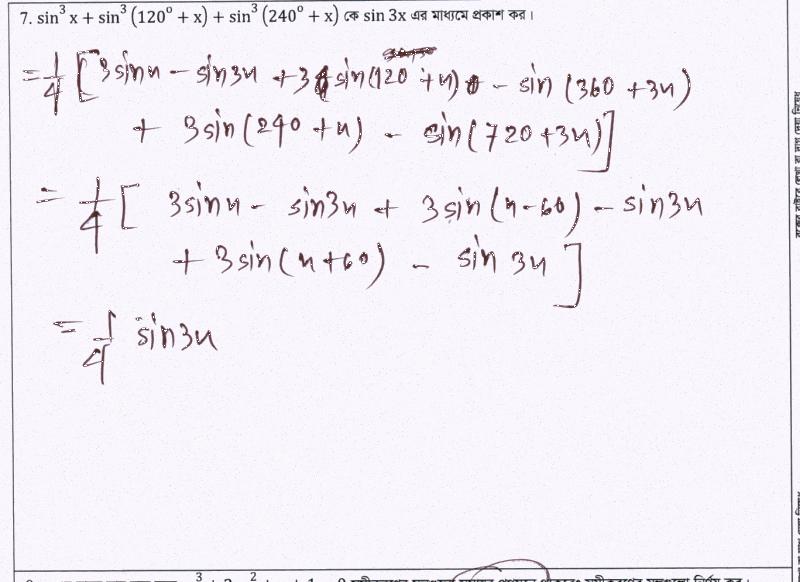 7. sin³ x + sin³ (120° + x) + sin³ (240° + x) কে sin 3x এর মাধ্যমে প্রকাশ কর।
= 1/4 [3sinx - sin3x + 3 sin(120 + x) - sin (360 + 3x)
+ 3sin(240 + x) - sin(720 + 3x)]
= 1/4 [ 3sinx - sin3x + 3sin(x-60) - sin3x
+ 3sin(x+60) - sin 3x ]
= 1/4 sin3x